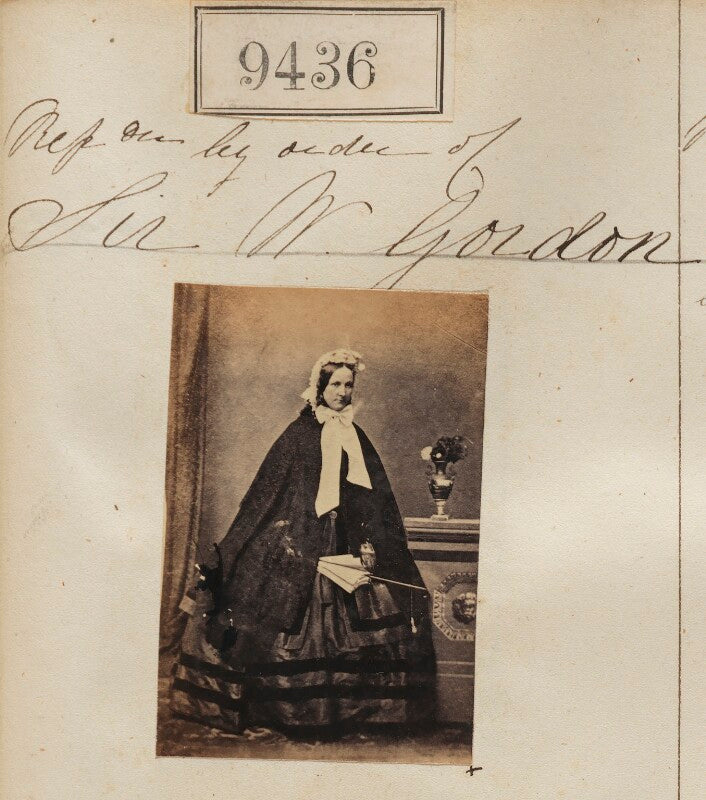 9436
Rep by order of
Sir W. Gordon